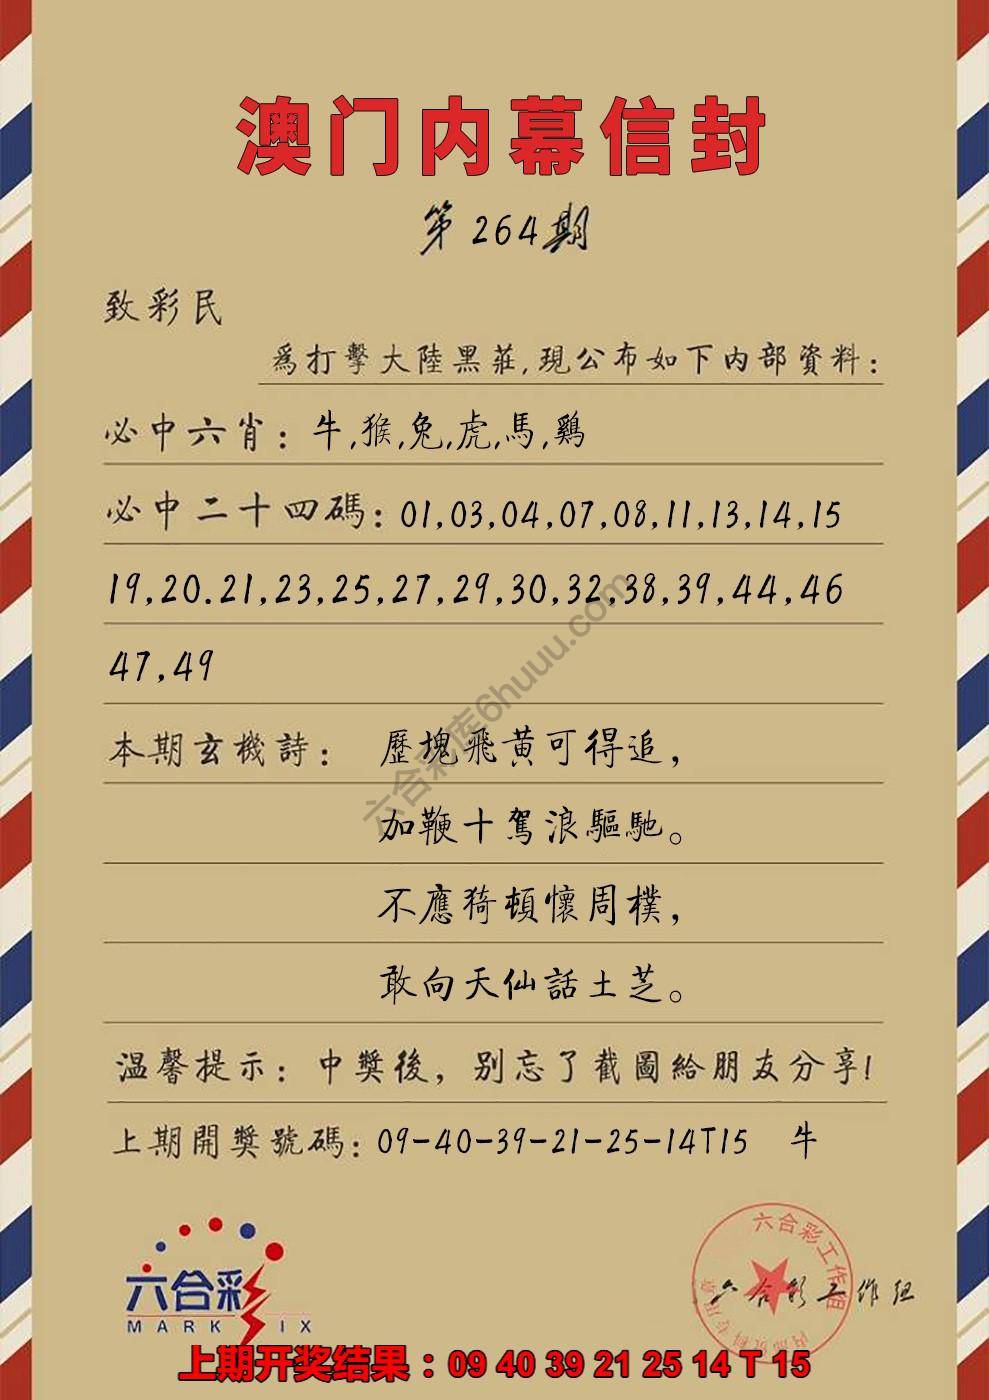 澳门内幕信封
第264期
致彩民
爲打擊大陸黑莊,現公布如下内部資料:
必中六肖:牛,猴,兔,虎,馬,鷄
必中二十四碼:01,03,04,07,08,11,13,14,15
19,20.21,23,25,27,29,30,32,38,39,44,46
47,49
本期玄機詩: 歷塊飛黄可得追,
加鞭十駕浪驅馳。
不應猗頓懷周樸,
敢向天仙話土芝。
温馨提示:中獎後,别忘了截圖給朋友分享!
上期開獎號碼:09-40-39-21-25-14T15 牛
六合彩
MARK SIX
六合彩工作组
六合彩工作组
上期开奖结果:09 40 39 21 25 14 T 15
六合彩库6huuu.com